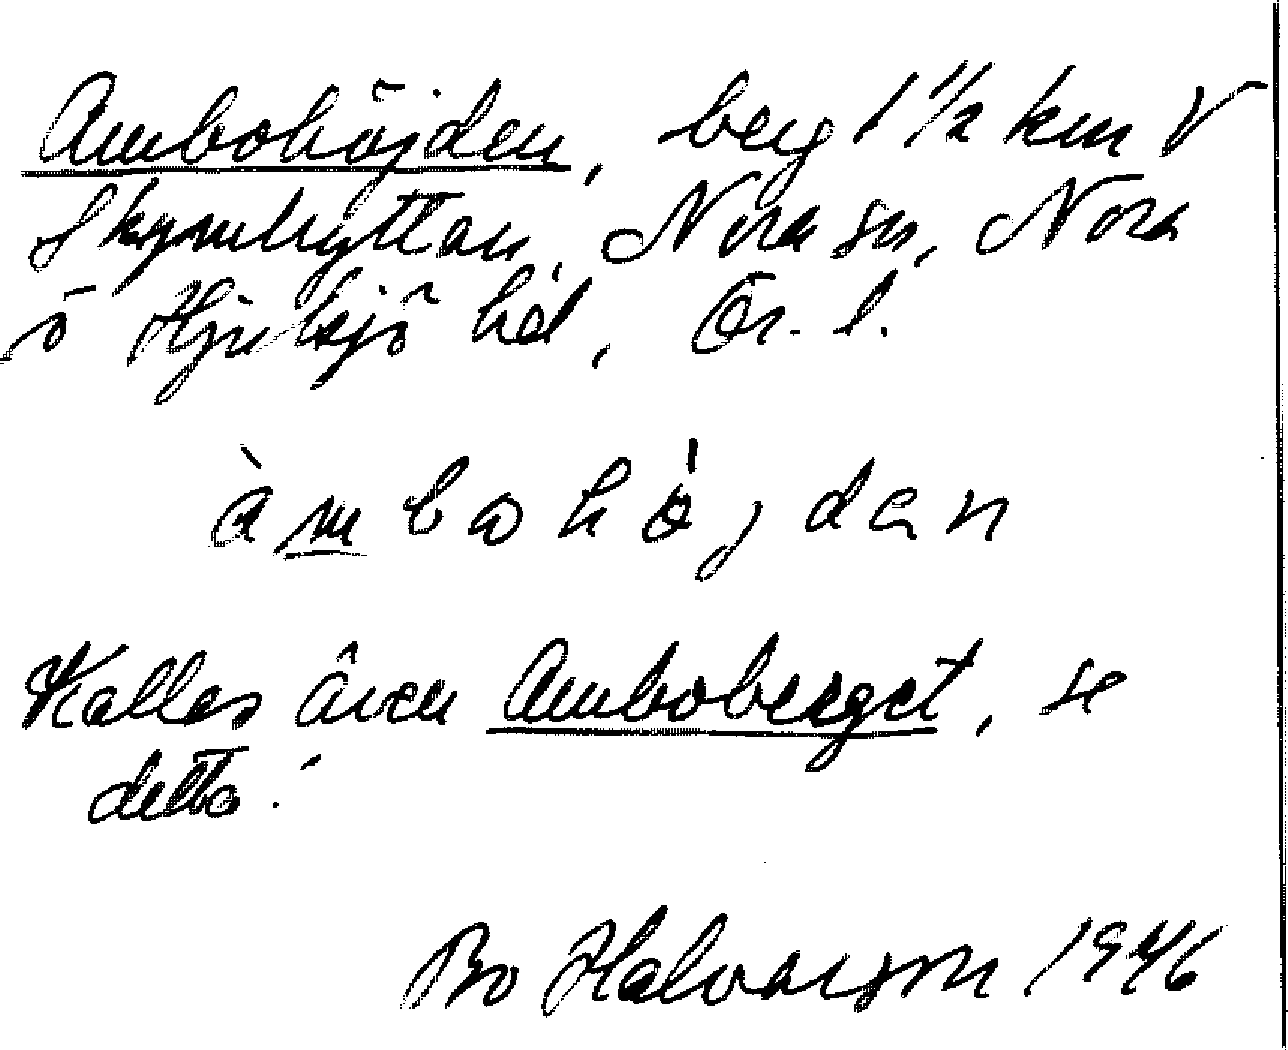 Ambohöjden, berg 1 1/2 km V
Skymhyttan, Nora sn, Nora
o Hjulsjö hd, Ör. l.
àmbohö́jdan
Kallas även Amboberget, se
detta.
Bo Halvarson 1946